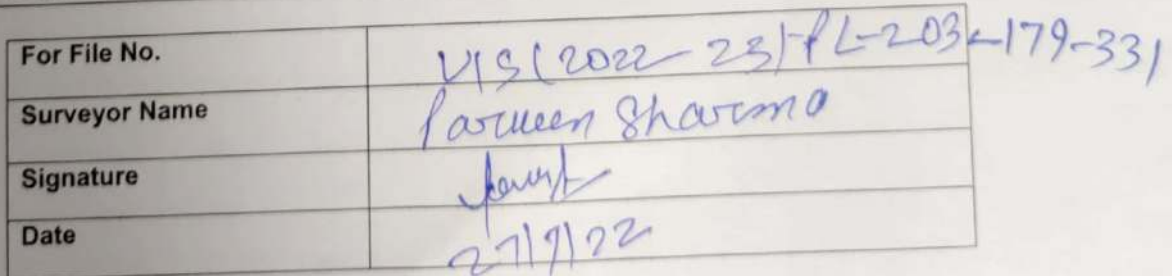 For File No. VIS(2022-23)-PL-203-179-331
Surveyor Name Parveen Sharma
Signature
Date 27/9/22